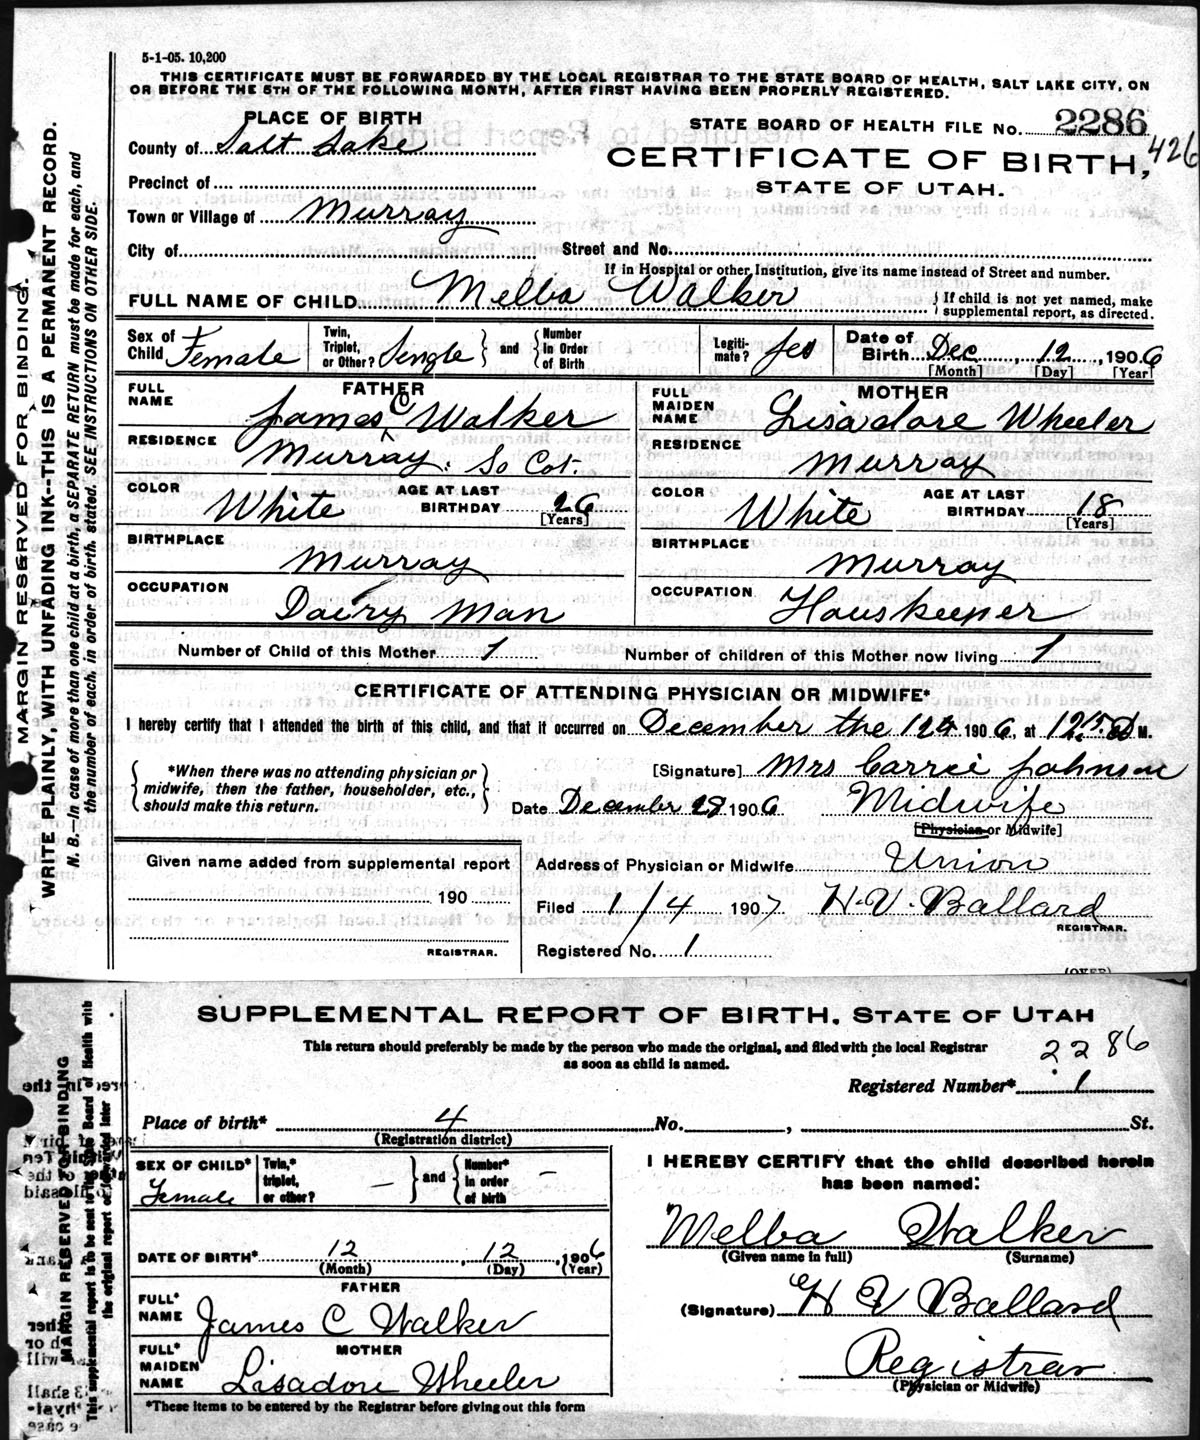 5-1-05. 10,200
THIS CERTIFICATE MUST BE FORWARDED BY THE LOCAL REGISTRAR TO THE STATE BOARD OF HEALTH, SALT LAKE CITY, ON
OR BEFORE THE 5TH OF THE FOLLOWING MONTH, AFTER FIRST HAVING BEEN PROPERLY REGISTERED.
MARGIN RESERVED FOR BINDING.
WRITE PLAINLY, WITH UNFADING INK--THIS IS A PERMANENT RECORD.
N. B.—In case of more than one child at a birth, a SEPARATE RETURN must be made for each, and
the number of each, in order of birth, stated. SEE INSTRUCTIONS ON OTHER SIDE.
PLACE OF BIRTH
STATE BOARD OF HEALTH FILE No. 2286
County of Salt Lake
CERTIFICATE OF BIRTH, 426
STATE OF UTAH.
Precinct of
Town or Village of Murray
City of Street and No.
If in Hospital or other Institution, give its name instead of Street and number.
FULL NAME OF CHILD Melba Walker { If child is not yet named, make
supplemental report, as directed.
Sex of Child Female Twin, Triplet, or Other? Sengle } and { Number In Order of Birth Legiti- mate? Yes Date of Birth Dec, 12, 1906
[Month] [Day] [Year]
FATHER MOTHER
FULL NAME James C Walker FULL MAIDEN NAME Lisadore Wheeler
RESIDENCE Murray. So Cot. RESIDENCE Murray
COLOR White AGE AT LAST BIRTHDAY 26 [Years] COLOR White AGE AT LAST BIRTHDAY 18 [Years]
BIRTHPLACE Murray BIRTHPLACE Murray
OCCUPATION Dairy Man OCCUPATION Houskeeper
Number of Child of this Mother 1 Number of children of this Mother now living 1
CERTIFICATE OF ATTENDING PHYSICIAN OR MIDWIFE*
I hereby certify that I attended the birth of this child, and that it occurred on December the 12 1906, at M.
{ *When there was no attending physician or
midwife, then the father, householder, etc.,
should make this return. }
[Signature] Mrs Carrie Johnson
Date December 1906 Midwife
[Physician or Midwife]
Given name added from supplemental report
190
REGISTRAR.
Address of Physician or Midwife Union
Filed 1/4 1907 H. V. Ballard
REGISTRAR.
Registered No. 1
(OVER)
MARGIN RESERVED FOR BINDING
This supplemental report is to be sent to the State Board of Health with
the original report or forwarded later
SUPPLEMENTAL REPORT OF BIRTH, STATE OF UTAH
This return should preferably be made by the person who made the original, and filed with the local Registrar
as soon as child is named.
2286
Registered Number* 1
Place of birth* 4 No. , St.
(Registration district)
SEX OF CHILD* Female Twin,* triplet, or other? — } and { Number* in order of birth —
I HEREBY CERTIFY that the child described herein
has been named:
Melba Walker
(Given name in full) (Surname)
DATE OF BIRTH* 12, 12, 1906
(Month) (Day) (Year)
FATHER
FULL* NAME James C Walker
(Signature) H V Ballard
MOTHER
FULL* MAIDEN NAME Lisadore Wheeler
Registrar
(Physician or Midwife)
*These items to be entered by the Registrar before giving out this form